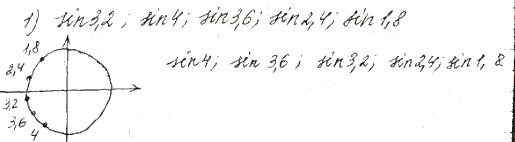 1) sin3,2 ; sin4; sin3,6; sin2,4; sin1,8
1,8
2,4
3,2
3,6
4
sin4; sin 3,6 ; sin3,2; sin2,4; sin1, 8